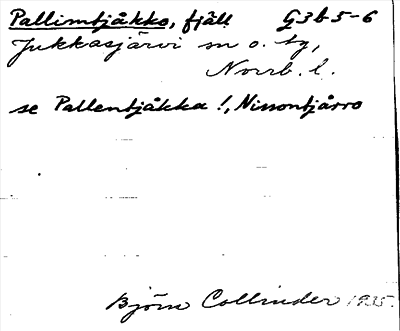 Pallimtjåkko, fjäll G3b5-6
Jukkasjärvi sn o. tg,
Norrb. l.
se Pallentjåkka !, Nissontjårro
Björn Collinder 1935.